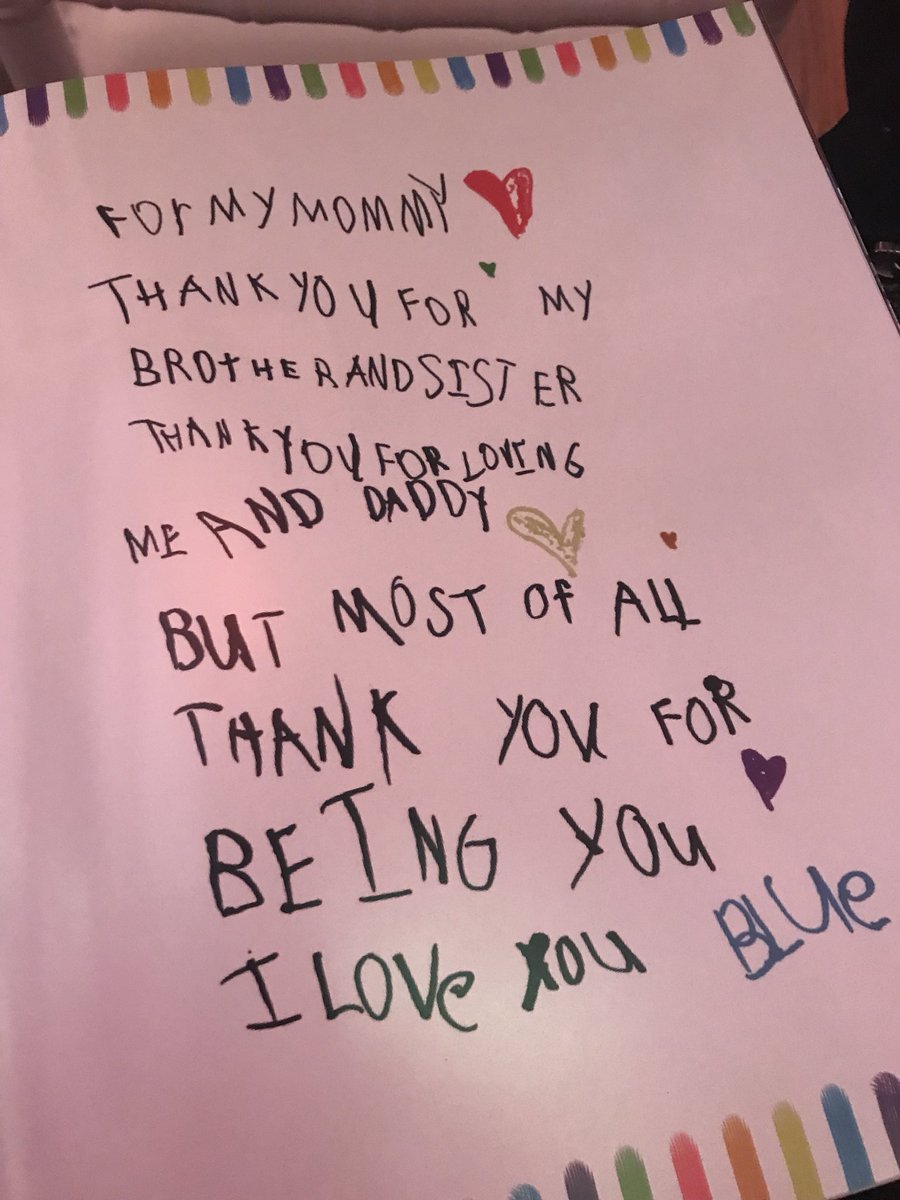 FOr MY MOMMY
THANK YOU FOR MY
BROtHER AND SISTER
THANK YOU FOR LOVING
ME AND DADDY
BUT MOST Of ALL
THANK YOU FOR
BEING YOU
I LOVe YOU BLUe